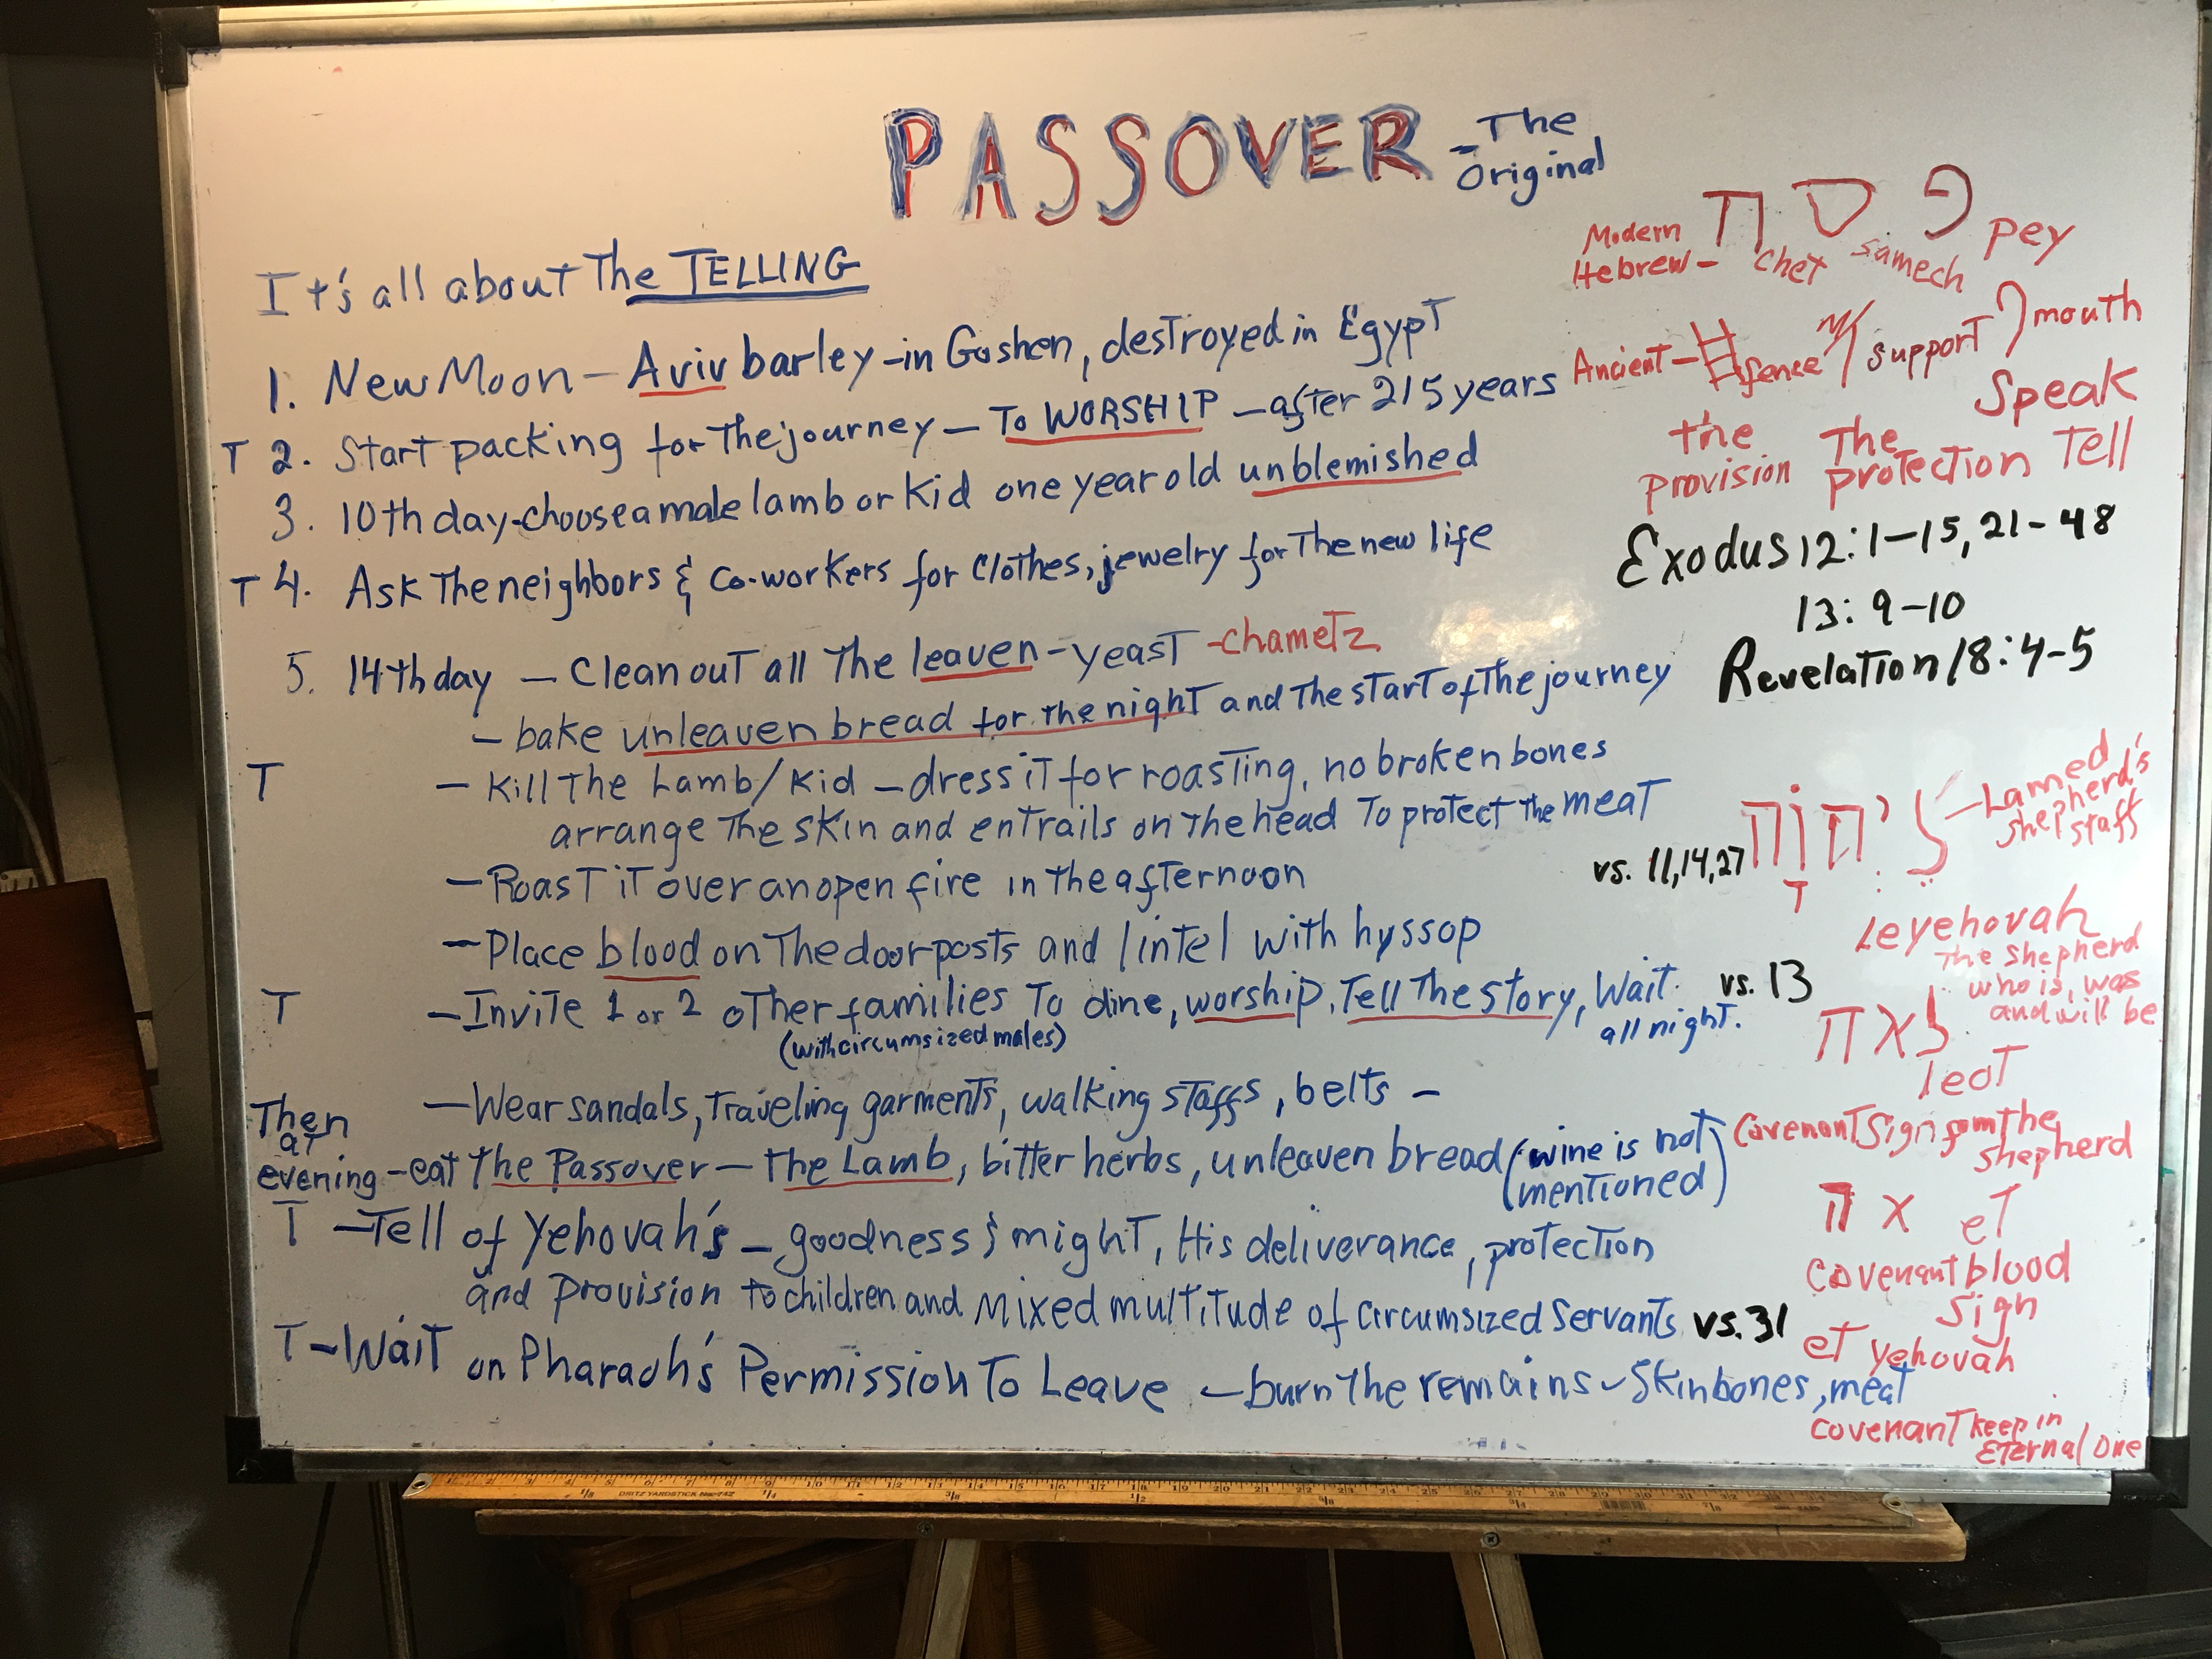 PASSOVER - The
Original
It's all about The TELLING
1. New Moon - Aviv barley - in Goshen, destroyed in Egypt
T 2. Start packing for The journey - To WORSHIP - after 215 years
3. 10th day - choose a male lamb or Kid one year old unblemished
T 4. Ask The neighbors & Co-workers for Clothes, jewelry for The new life
5. 14th day - Clean out all The leaven - yeast - chametz
- bake unleaven bread for the night and The start of The journey
T - Kill The Lamb/Kid - dress it for roasting, no broken bones
arrange The skin and entrails on The head To protect the meat
- Roast it over an open fire in the afternoon
- Place blood on The doorposts and lintel with hyssop
T - Invite 1 or 2 other families To dine, worship, Tell The story, Wait
all night.
(with circumsized males)
- Wear sandals, Traveling garments, walking staffs, belts -
Then
at
evening - eat the Passover - the Lamb, bitter herbs, unleaven bread (wine is not
mentioned)
T - Tell of Yehovah's - goodness & might, His deliverance, protection
and provision to children and mixed multitude of circumsized servants vs. 31
T - Wait on Pharaoh's Permission To Leave - burn the remains - skin bones, meat
פ ס ח pey
Modern
Hebrew - chet samech
Ancient - fence support mouth
Speak
the The Tell
provision protection
Exodus 12:1-15, 21-48
13: 9-10
Revelation 18:4-5
ליהוה - Lamed
shepherd's
staff
vs. 11,14,27
T
Leyehovah
The shepherd
who is, was
and will be
vs. 13
לאת
leot
Covenant Sign from the
shepherd
את et
covenant blood
sign
et yehovah
covenant keep in
Eternal One